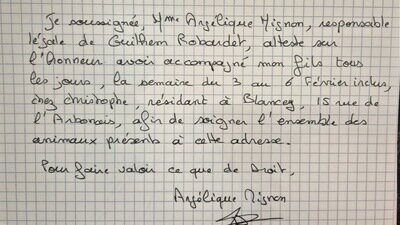 Je soussignée, Mme Angélique Mignon, responsable
légale de Guilhem Robardet, atteste sur
l'Honneur avoir accompagné mon fils tous
les jours, la semaine du 3 au 6 Février inclus,
chez Christophe, résidant à Blancey, 15 rue de
l'Arbonais, afin de soigner l'ensemble des
animaux présents à cette adresse.
Pour faire valoir ce que de Droit,
Angélique Mignon